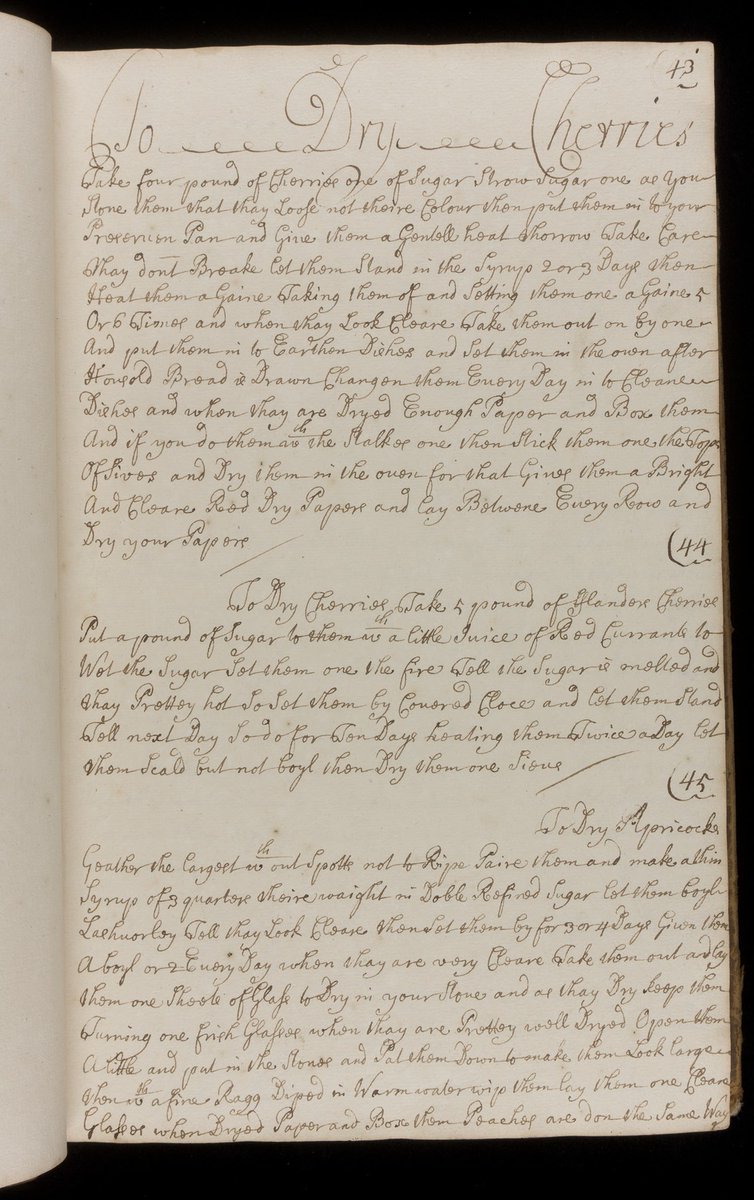 (43
To Dry Cherries
Take four pound of Cherries one of Sugar Strow Sugar one as you
Stone them that thay Loose not theire Colour then put them in to your
Preserven Pan and Give them a Gentell heat thorrow Take Care
thay dont Breake let them Stand in the Syrup 2 or 3 Days then
Heat them a Gaine Taking them of and Setting them one a Gaine 5
Or 6 Times and when thay Look Cleare Take them out on by one
And put them in to Earthen Dishes and Set them in the oven after
Housold Bread is Drawn Changen them Every Day in to Cleane
Dishes and when thay are Dryed Enough Paper and Box them
And if you do them wth the Stalkes one then Stick them one the Tops
Of Sives and Dry them in the oven for that Gives them a Bright
And Cleare Red Dry Papers and Lay Betwene Every Row and
Dry your Papers
(44
To Dry Cherries Take 5 pound of Flanders Cherries
Put a pound of Sugar to them wth a little Juice of Red Currants to
Wet the Sugar Set them one the fire Tell the Sugar is melted and
thay Prettey hot So Set them by Covered Cloce and let them Stand
Tell next Day So do for Ten Days heating them Twice a Day let
them Scald but not boyl then Dry them one Sieve
(45
To Dry Apricocks
Geather the largest wth out Spotts not to Ripe Paire them and make a thin
Syrup of 3 quarters theire waight in Doble Refired Sugar let them boyl
Lashuorley Tell thay Look Cleare then Set them by for 3 or 4 Days Given them
A boyl or 2 Every Day when thay are very Cleare Take them out and lay
them one Sheets of Glass to Dry in your Stove and as thay Dry keep them
Turning one frish Glasses when thay are Prettey well Dryed Open them
A little and put in the Stones and Pat them Down to make them Look large
then wth a fine Ragg Diped in Warm water wip them lay them one Cleare
Glasses when Dryed Paper and Box them Peaches are don the Same Way